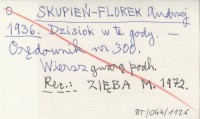 SKUPIEŃ-FLOREK Andrzej
1936. Dzisiok w te gody. –
Orędownik nr 300.
Wiersz gwarą podh.
Rec.: ZIĘBA M. 1972.
BT/044/1126